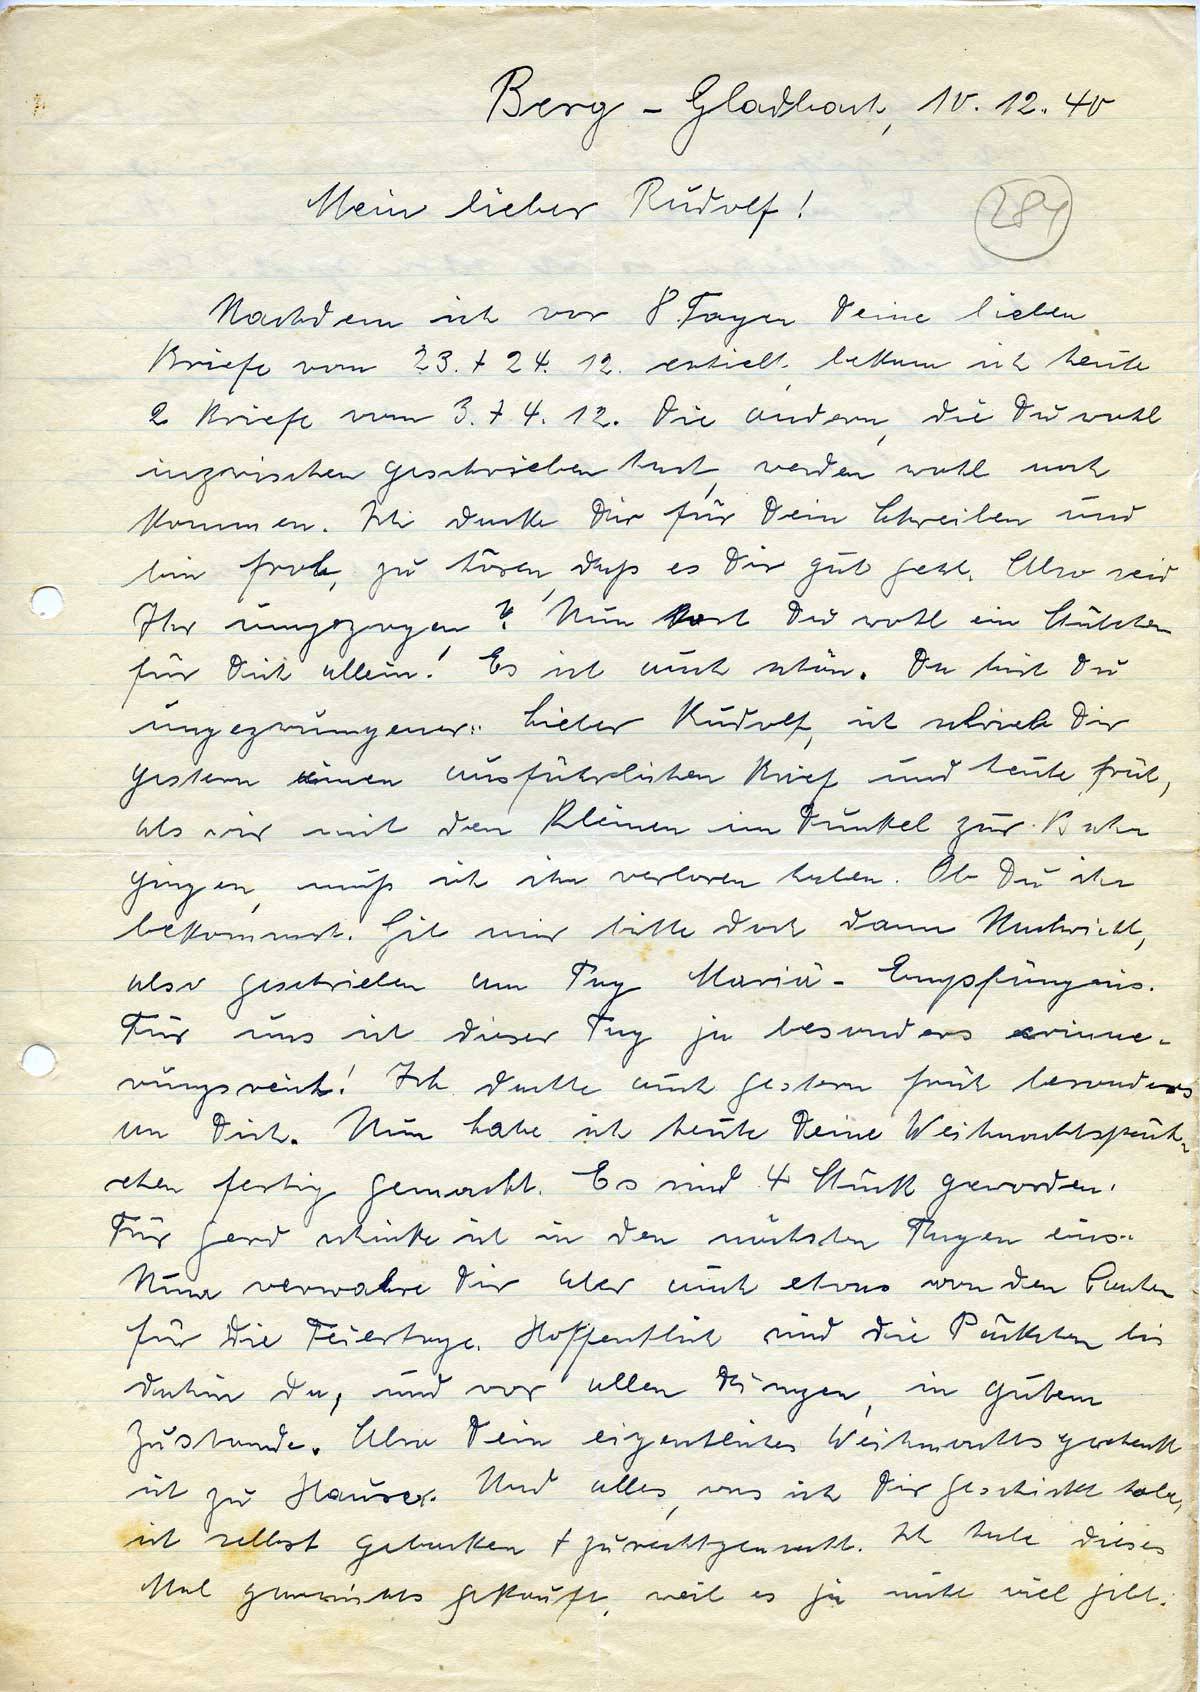 Berg-Gladbach, 10.12.40
284
Mein lieber Rudolf!
Nachdem ich vor 8 Tagen Deine lieben
Briefe vom 23. + 24. 12. erhielt, bekam ich heute
2 Briefe vom 3. + 4. 12. Die andern, die Du wohl
inzwischen geschrieben hast, werden wohl noch
kommen. Ich danke Dir für Dein Schreiben und
bin froh, zu hören, daß es Dir gut geht. Also seid
Ihr umgezogen? Nun hast Du wohl ein Stübchen
für Dich allein! Es ist auch schön. Da bist Du
ungezwungener. Lieber Rudolf, ich schrieb Dir
gestern einen ausführlichen Brief und heute früh,
als wir mit den Kleinen im Dunkel zur Bahn
gingen, muß ich ihn verloren haben. Ob Du ihn
bekommst. Gib mir bitte doch dann Nachricht,
also geschrieben am Tag Mariä-Empfängnis.
Für uns ist dieser Tag ja besonders erinne-
rungsreich! Ich dachte auch gestern früh besonders
an Dich. Nun habe ich heute Deine Weihnachtspäck-
chen fertig gemacht. Es sind 4 Stück geworden.
Für Gerd schicke ich in den nächsten Tagen eins.
Nun verwahre Dir aber auch etwas von den Sachen
für die Feiertage. Hoffentlich sind die Päckchen bis
dahin da, und vor allen Dingen, in gutem
Zustande. Also Dein eigentliches Weihnachtsgeschenk
ist zu Hause. Und alles, was ich Dir geschickt habe,
ist selbst gebacken + zurechtgemacht. Ich habe dieses
Mal garnichts gekauft, weil es ja nicht viel gibt.